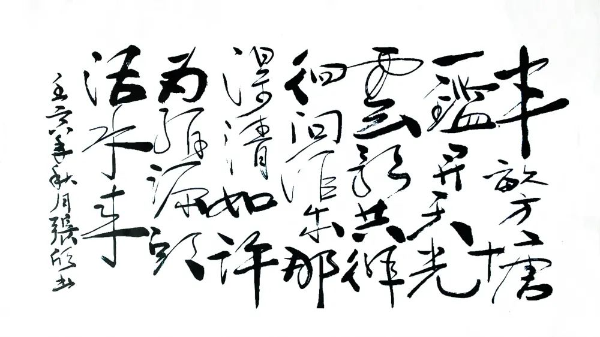 半畝方塘
一鑑开天光
雲影共徘
徊问渠那
得清如许
为有源头
活水来
壬寅年秋月張欣书